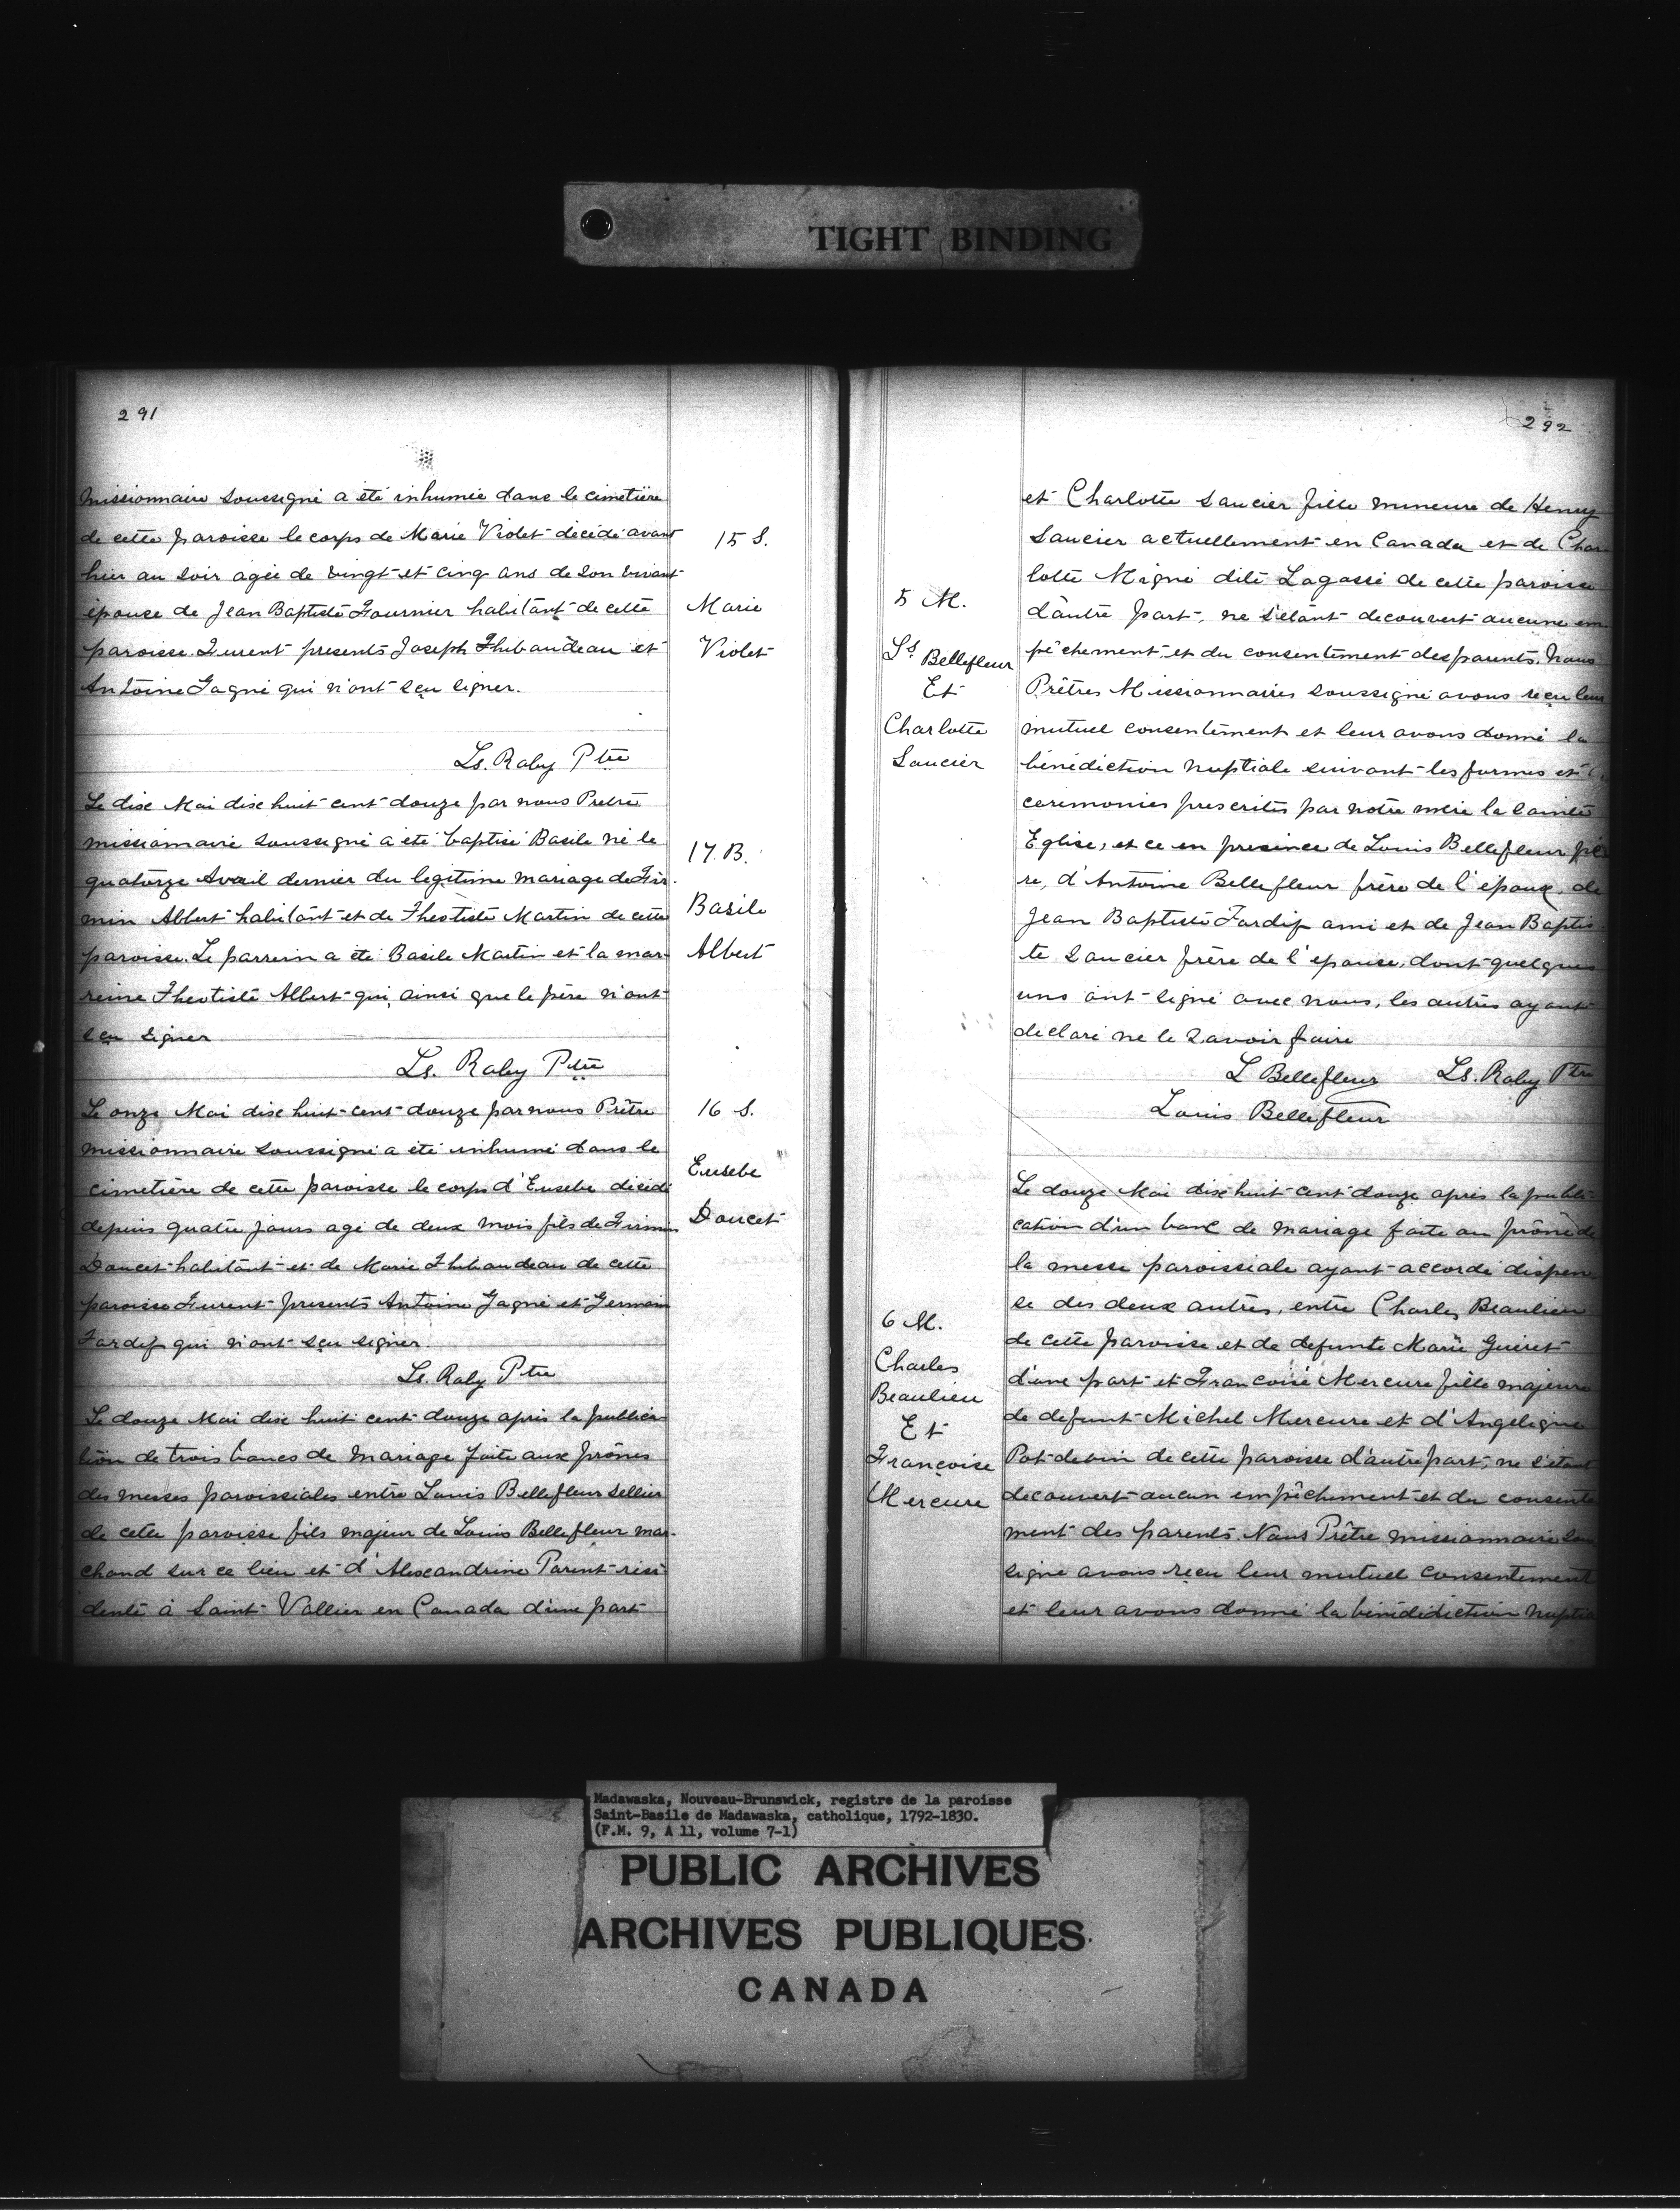 TIGHT BINDING
291
missionnaire soussigné a été inhumée dans le cimetière
de cette paroisse le corps de Marie Violet décédé avant
hier au soir agée de vingt et cinq ans de son vivant
épouse de Jean Baptiste Fournier habitant de cette
paroisse. Furent presents Joseph Thibaudeau et
Antoine Gagné qui n'ont sçu signer.
15 S.
Marie
Violet
Ls. Raby Ptre
Le dix Mai dix huit cent douze par nous Pretre
missionnaire soussigné a été baptisé Basile né le
quatorze Avril dernier du legitime mariage de Fir-
min Albert habitant et de Theotiste Martin de cette
paroisse. Le parrein a été Basile Martin et la mar-
reine Theotiste Albert qui, ainsi que le père n'ont
sçu signer
17. B.
Basile
Albert
Ls. Raby Ptre
Le onze Mai dix huit cent douze par nous Prêtre
missionnaire soussigné a été inhumé dans le
cimetière de cette paroisse le corps d'Eusebe décédé
depuis quatre jours agé de deux mois fils de Firmin
Doucet habitant et de Marie Thibaudeau de cette
paroisse Furent presents Antoine Gagné et Germain
Tardif qui n'ont sçu signer.
16 S.
Eusebe
Doucet
Ls. Raby Ptre
Le douze Mai dix huit cent douze après la publica
tion de trois bancs de mariage faite aux prônes
des messes paroissiales entre Louis Bellefleur sellier
de cette paroisse fils majeur de Louis Bellefleur mar-
chand sur ce lieu et d'Alexandrine Parent rési
dente à Saint Vallier en Canada d'une part
292
et Charlotte Saucier fille mineure de Henry
Saucier actuellement en Canada et de Char
lotte Migné dite Lagassé de cette paroisse
d'autre part, ne s'étant decouvert aucune em
pêchement, et du consentement des parents. Nous
Prêtres Missionnaires soussigné avons reçu leur
mutuel consentement et leur avons donné la
bénédiction nuptiale suivant les formes et
ceremonies prescrites par notre mère la Sainte
Eglise, et ce en presence de Louis Bellefleur pè
re, d'Antoine Bellefleur frère de l'époux, de
Jean Baptiste Tardif ami et de Jean Baptis
te Saucier frère de l'épouse, dont quelques
uns ont signé avec nous, les autres ayant
declaré ne le savoir faire
5 M.
Ls. Bellefleur
Et
Charlotte
Saucier
L Bellefleur Ls. Raby Ptre
Louis Bellefleur
Le douze Mai dix huit cent douze après la publi-
cation d'un banc de mariage faite au prône de
la messe paroissiale ayant accordé dispen
se des deux autres, entre Charles Beaulieu
de cette paroisse et de defunte Marie Guéret
d'une part et Françoise Mercure fille majeure
de defunt Michel Mercure et d'Angelique
Pot-de-vin de cette paroisse d'autre part, ne s'étant
decouvert aucun empêchement et du consente
ment des parents. Nous Prêtre missionnaire sou
signé avons reçu leur mutuel consentement
et leur avons donné la bénédidiction nuptia
6 M.
Charles
Beaulieu
Et
Françoise
Mercure
Madawaska, Nouveau-Brunswick, registre de la paroisse
Saint-Basile de Madawaska, catholique, 1792-1830.
(F.M. 9, A 11, volume 7-1)
PUBLIC ARCHIVES
ARCHIVES PUBLIQUES
CANADA